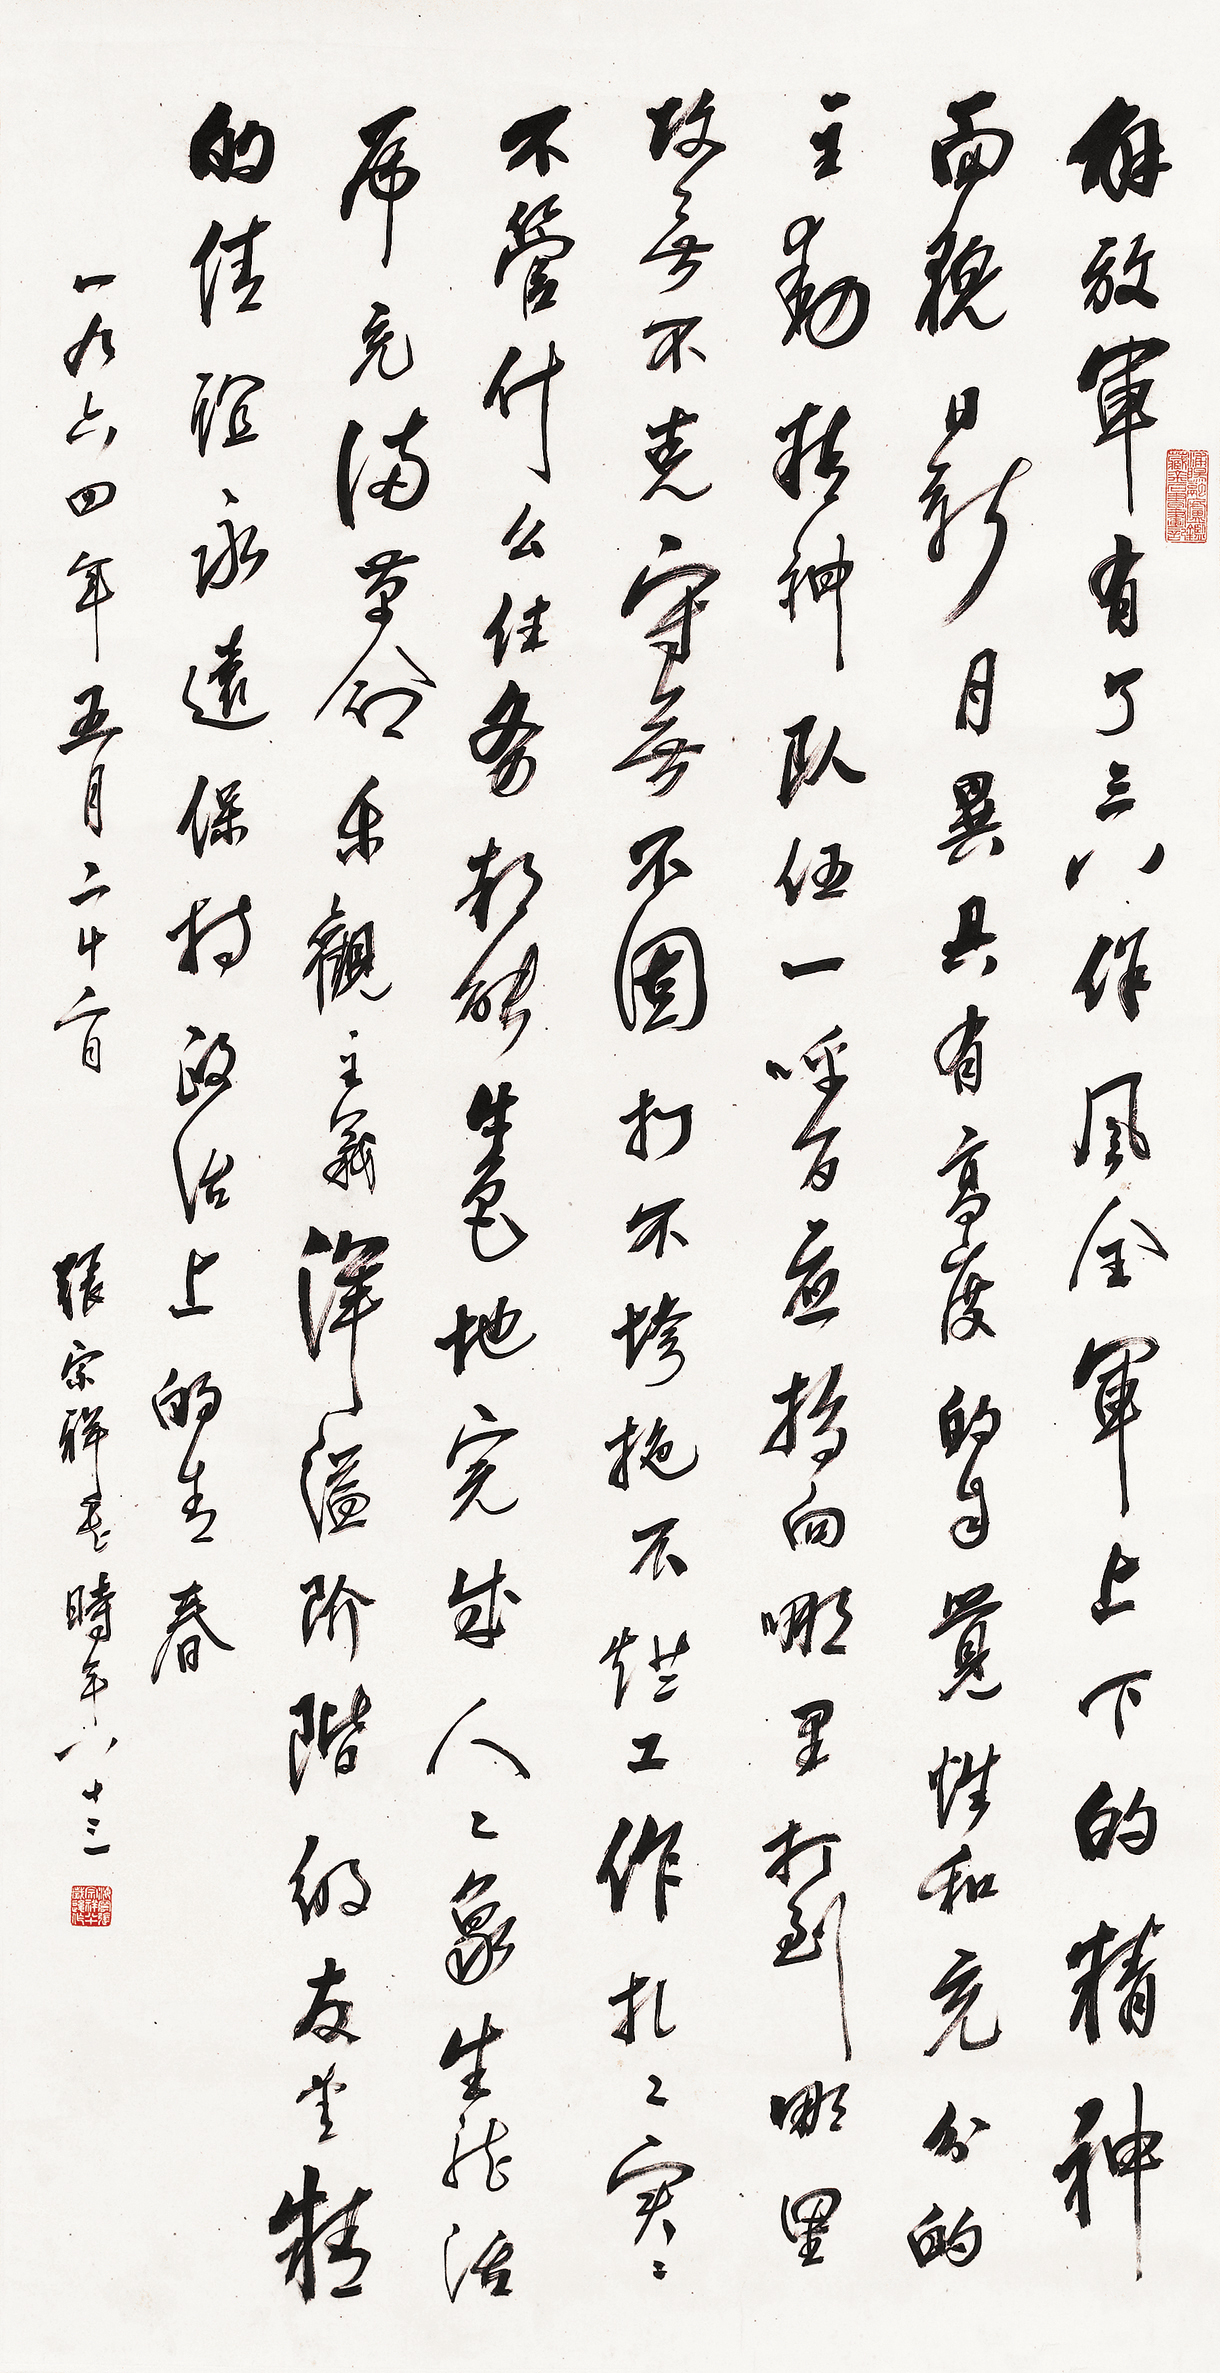 解放軍有了三八作风全軍上下的精神
面貌日新月異具有高度的自覺性和充分的
主動精神队伍一呼百应指向哪里打到哪里
攻無不克守無不固打不垮拖不烂工作扎〻实〻
不管什么任务都能出色地完成人〻象生龙活
虎充满革命乐觀主義洋溢阶階级友爱精
的情谊永遠保持政治上的青春
一九六四年五月二十二日 張宗祥書時年八十三